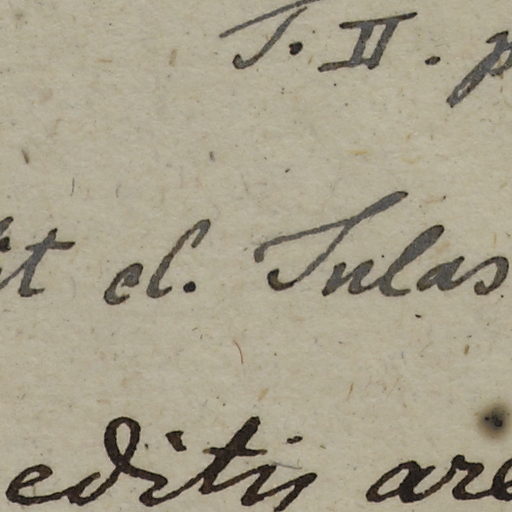 T. II. p
it cl. Sulas
editis are